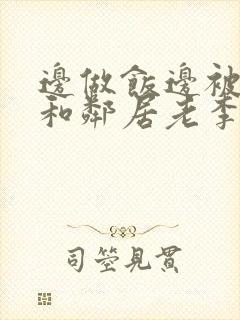 邊做飯邊被
和鄰居老李
司空見貫